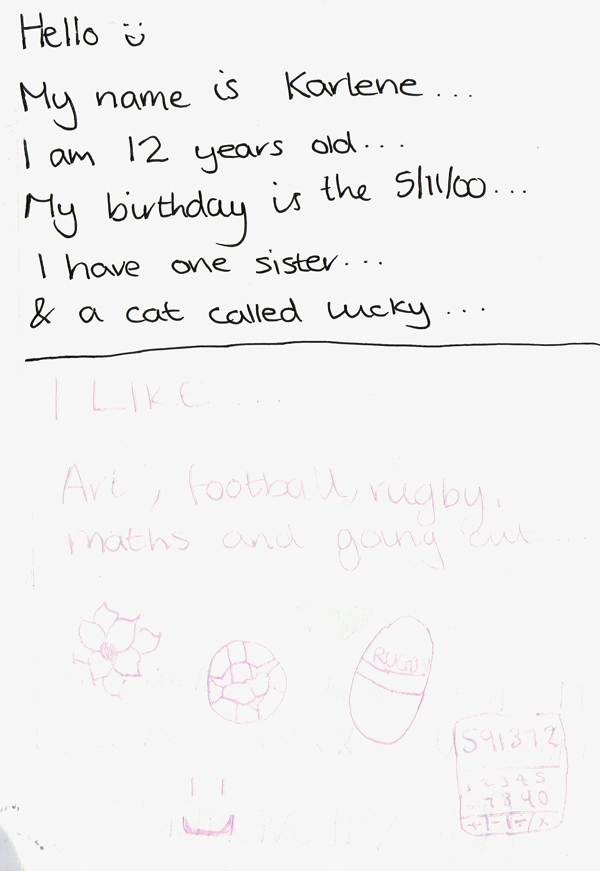 Hello
My name is Karlene...
I am 12 years old...
My birthday is the 5/11/00...
I have one sister...
& a cat called lucky...
I LIKE ...
Art, football, rugby,
maths and going out...
RUGBY
591372
1 2 3 4 5
6 7 8 9 0
+ - ÷ x